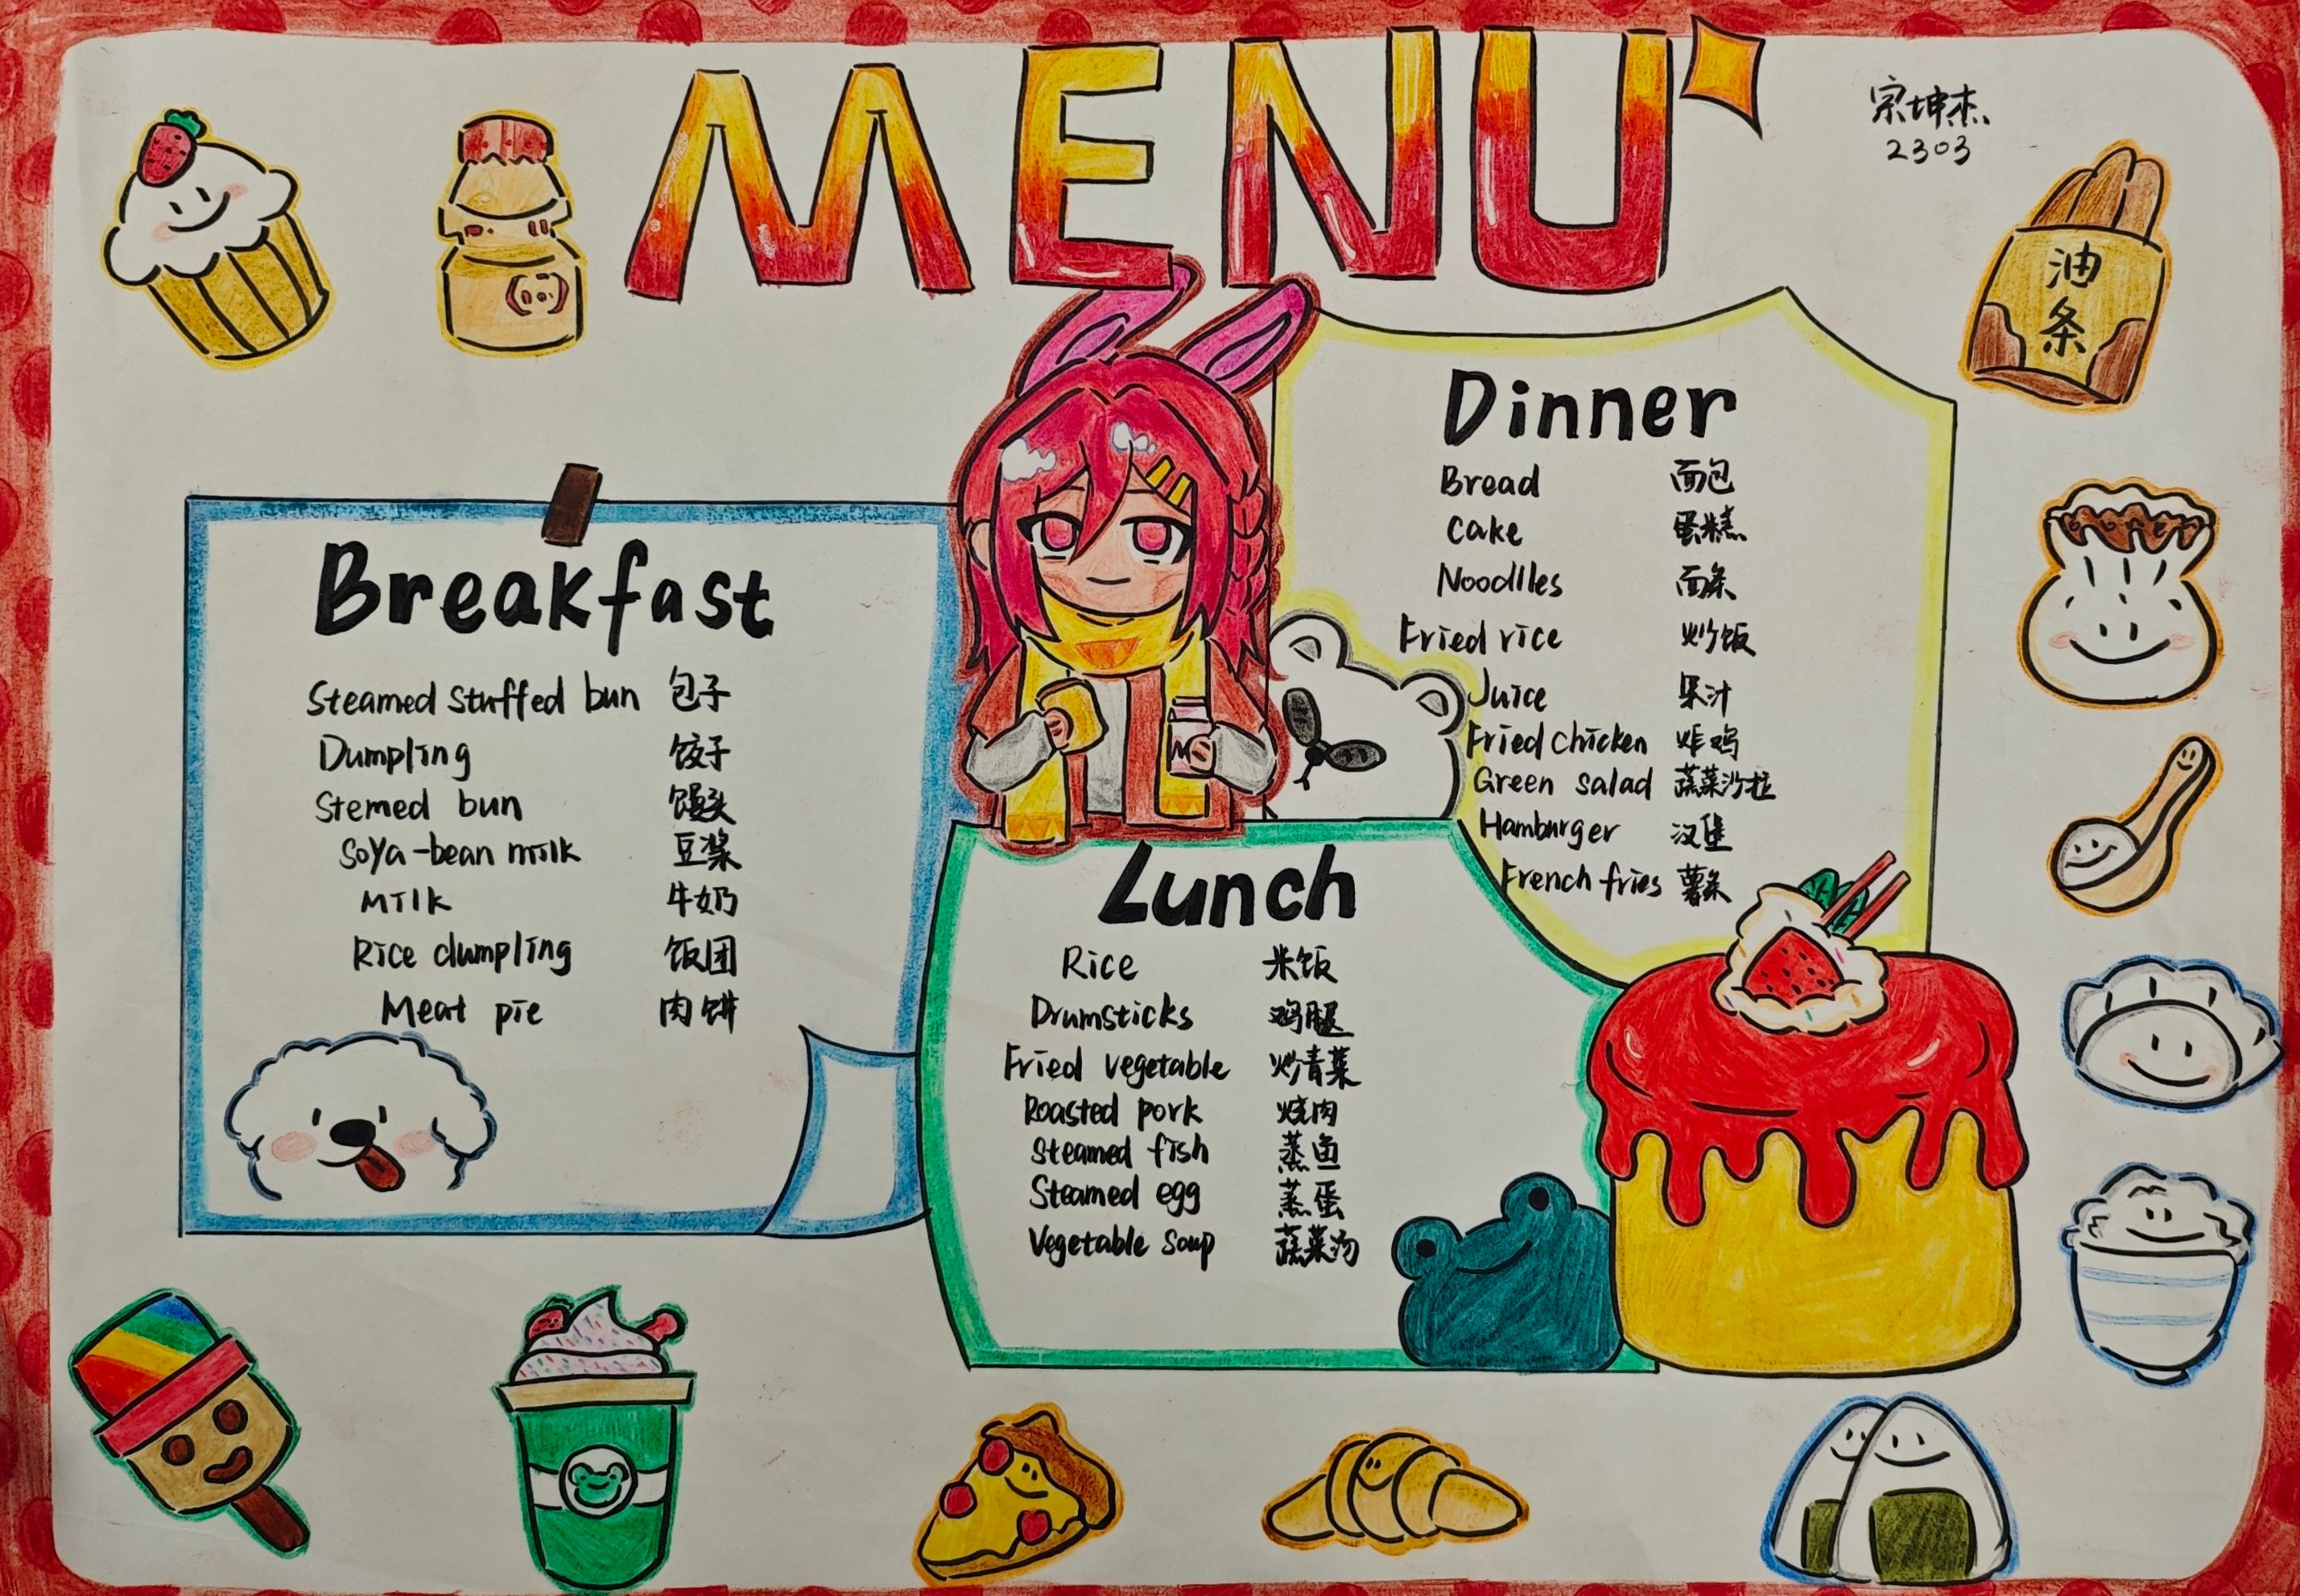 MENU
宗坤杰
2303
油
条
Breakfast
Steamed stuffed bun 包子
Dumpling 饺子
Stemed bun 馒头
Soya-bean milk 豆浆
Milk 牛奶
Rice dumpling 饭团
Meat pie 肉饼
Dinner
Bread 面包
Cake 蛋糕
Noodlles 面条
Fried rice 炒饭
Juice 果汁
Fried chicken 炸鸡
Green salad 蔬菜沙拉
Hamburger 汉堡
French fries 薯条
Lunch
Rice 米饭
Drumsticks 鸡腿
Fried vegetable 炒青菜
Roasted pork 烧肉
Steamed fish 蒸鱼
Steamed egg 蒸蛋
Vegetable soup 蔬菜汤